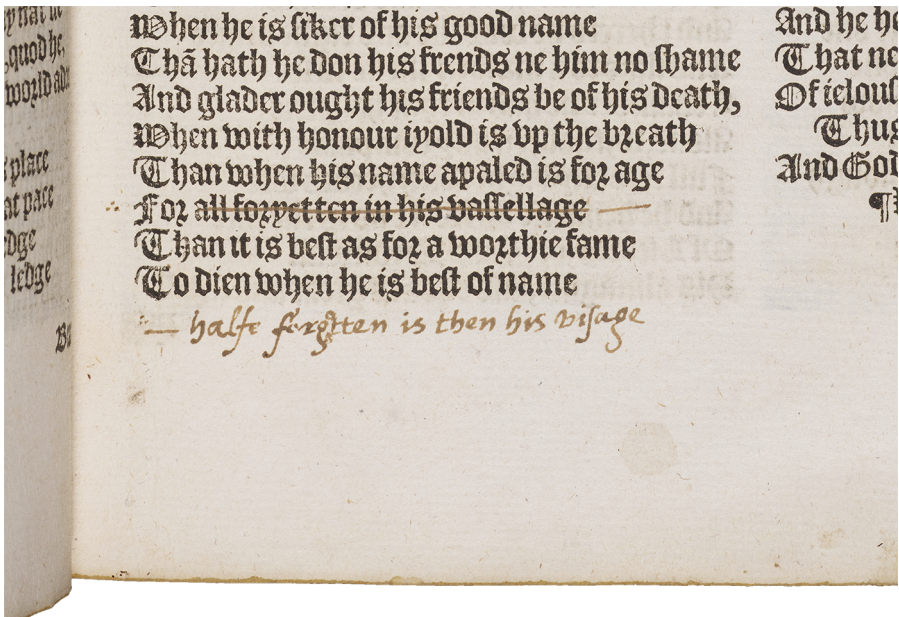 quod he,
world
s place
at pace
dge
ledge
When he is siker of his good name
Thã hath he don his frends ne him no shame
And glader ought his friends be of his death,
When with honour iyold is vp the breath
Than when his name apaled is for age
For all foryetten in his vassellage
Than it is best as for a worthie fame
To dien when he is best of name
— halfe forgtten is then his visage
And he
That ne
Of ielous
Thus
And God
¶